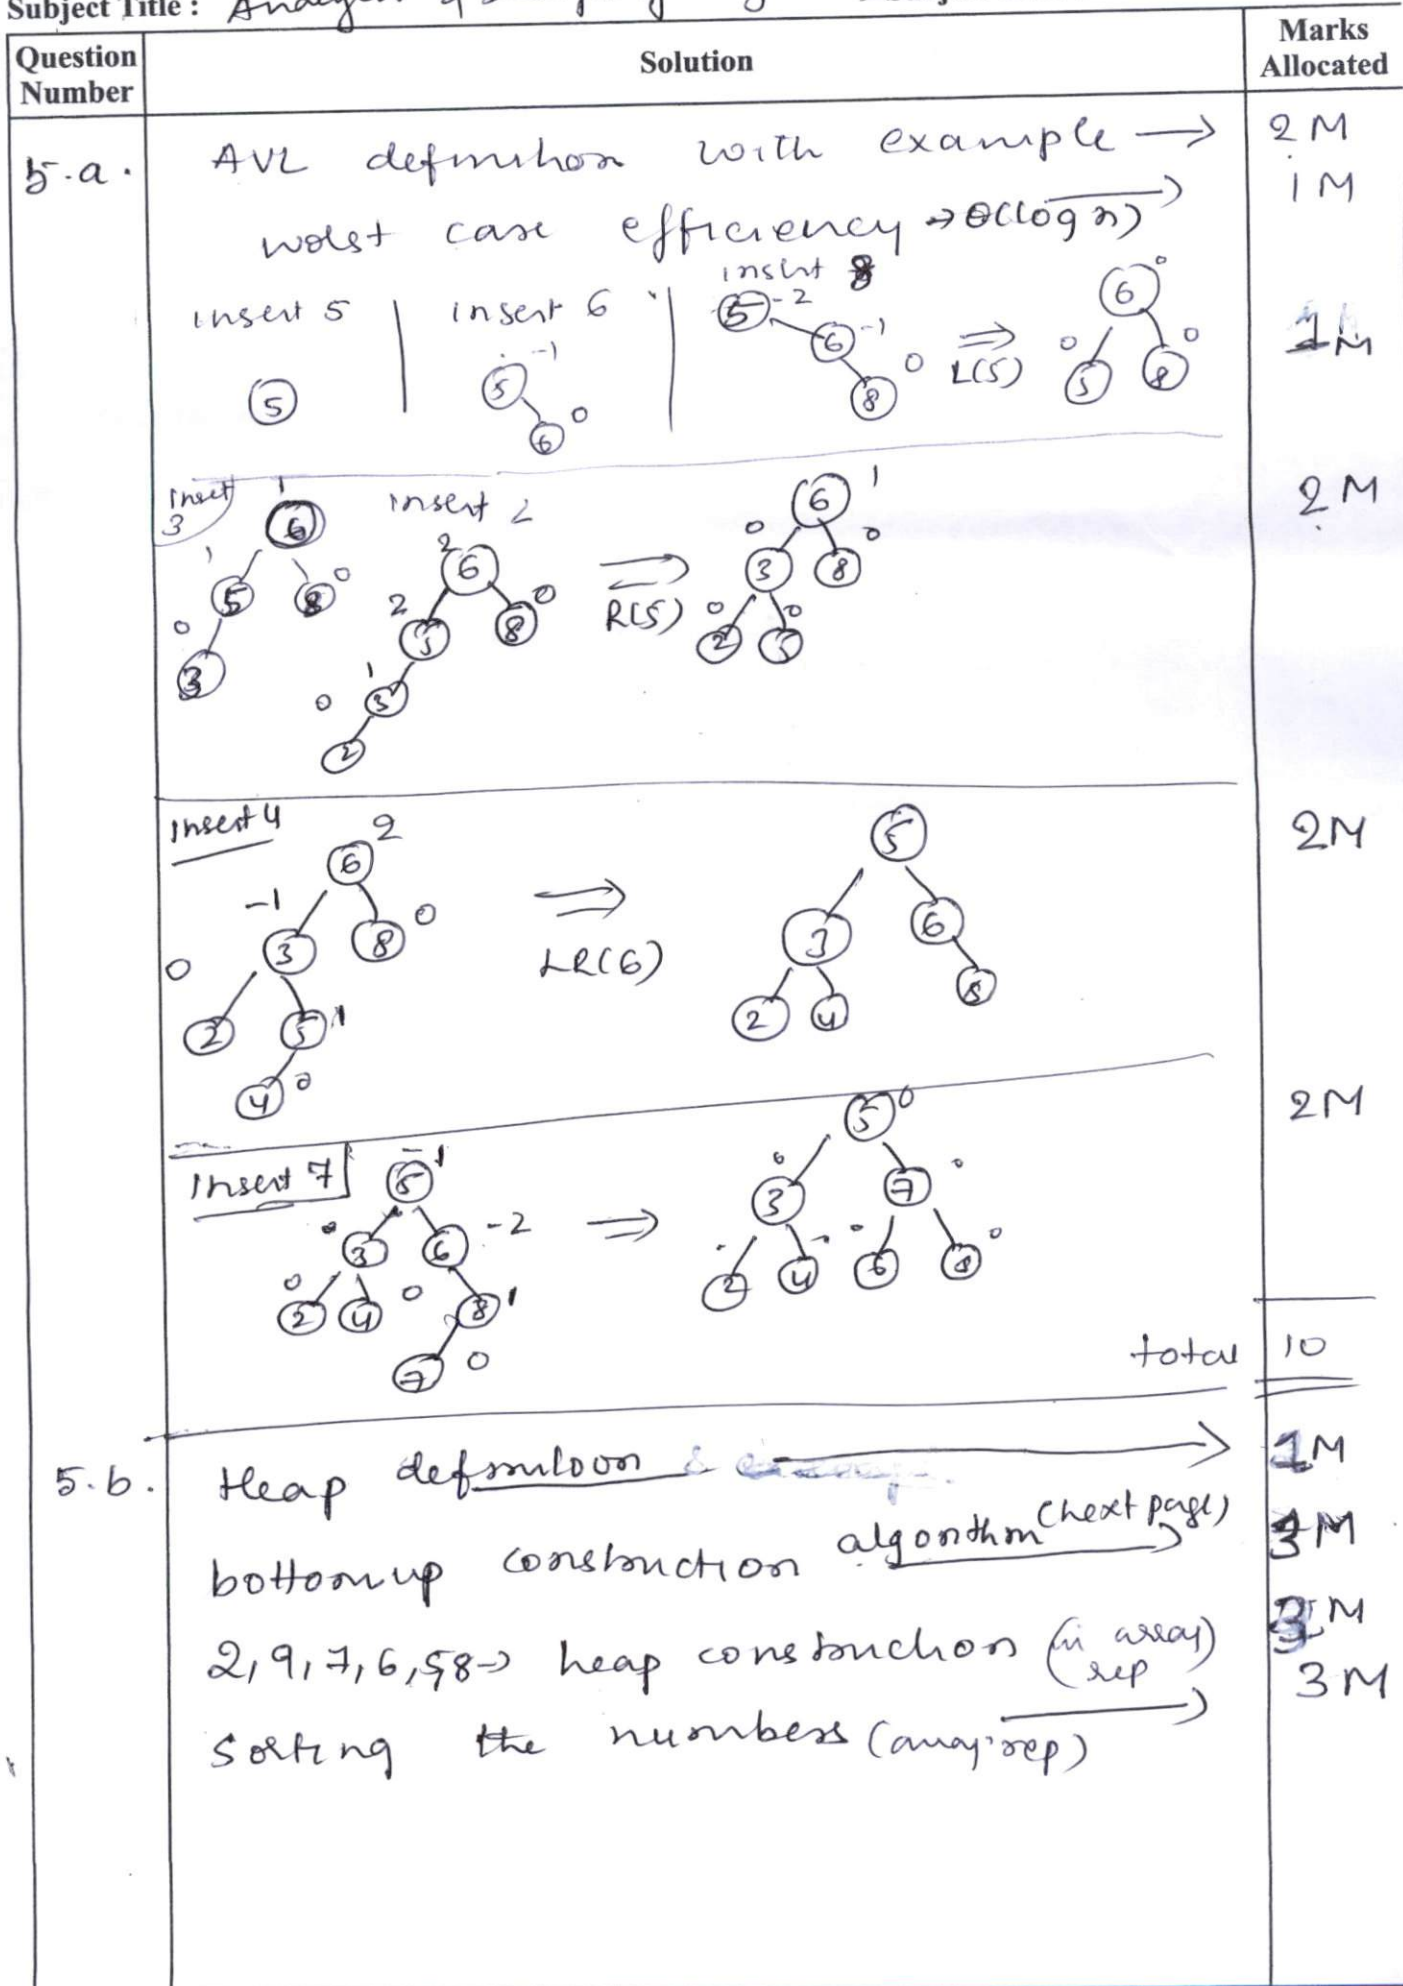 Subject Title :
Question Number
Solution
Marks Allocated
5.a.
AVL definition with example → 2M
worst case efficiency → θ(log n) → 1M
insert 5
5
insert 6
5 -1
6 0
insert 8
5 -2
6 -1
8 0
⇒ L(5)
6 0
0 5 8 0
1M
insert 3
1
6
1 5 8 0
0 3
insert 2
2 6
2 5 8 0
1 3
0 2
⇒ R(5)
6 1
0 3 8 0
0 2 5 0
2M
insert 4
6 2
-1 3 8 0
0 2 5 1
4 0
⇒ LR(6)
5
3 6
2 4 8
2M
insert 7
5 -1
3 6 -2
0 2 4 0 8 1
7 0
⇒
5 0
0 3 7 0
2 4 6 8 0
2M
total 10
5.b.
Heap definition → 1M
bottom up construction algorithm (next page) → 3M
2,9,7,6,5,8→ heap construction (in array rep) 3M
sorting the numbers (array rep) → 3M